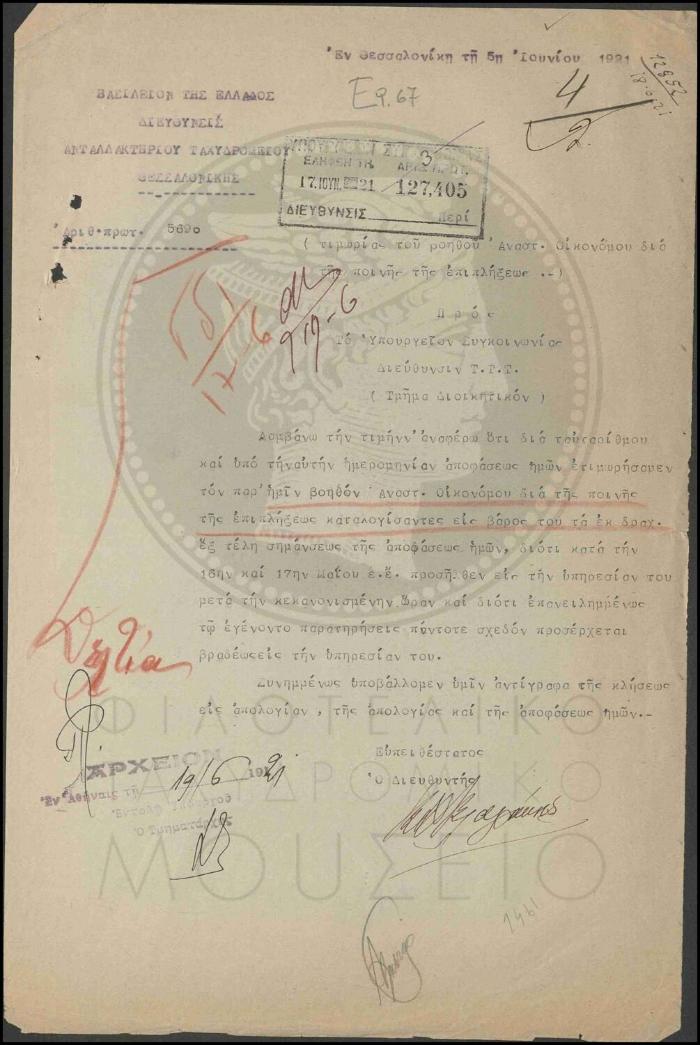 Ἐν Θεσσαλονίκῃ τῇ 5ῃ Ἰουνίου 1921
12852
18.6.21
Εφ.67
4
2
ΒΑΣΙΛΕΙΟΝ ΤΗΣ ΕΛΛΑΔΟΣ
ΔΙΕΥΘΥΝΣΙΣ
ΑΝΤΑΛΛΑΚΤΗΡΙΟΥ ΤΑΧΥΔΡΟΜΕΙΟΥ
ΘΕΣΣΑΛΟΝΙΚΗΣ
ΥΠΟΥΡΓΕΙΟΝ ΣΥΓΚΟΙΝΩΝΙΑΣ
ΕΛΗΦΘΗ ΤΗ. ΑΡΙΘ. ΠΡΩΤ.
3
17.ΙΟΥΝ.1921 127,405
ΔΙΕΥΘΥΝΣΙΣ
Περί
Ἀριθ.πρωτ. 5690
( τιμωρίας τοῦ βοηθοῦ Ἀναστ. Οἰκονόμου διά
τῆς ποινῆς τῆς ἐπιπλήξεως .-)
17/6
19-6
Π ρ ό ς
Τό Ὑπουργεῖον Συγκοινωνίας
Διεύθυνσιν Τ.Τ.Τ.
( Τμῆμα Διοικητικόν )
Λαμβάνω τήν τιμήνν ἀναφέρω ὅτι διά ταὐταρίθμου
καί ὑπό τήναὐτήν ἡμερομηνίαν ἀποφάσεως ἡμῶν ἐτιμωρήσαμεν
τόν παρ'ἡμῖν βοηθόν Ἀναστ. Οἰκονόμου διά τῆς ποινῆς
τῆς ἐπιπλήξεως καταλογίσαντες εἰς βάρος του τά ἐκ δραχ.
ἕξ τέλη σημάνσεως τῆς ἀποφάσεως ἡμῶν, διότι κατά τήν
16ην καί 17ην Μαΐου ἐ.ἔ. προσῆλθεν εἰς τήν ὑπηρεσίαν του
μετά τήν κεκανονισμένην ὥραν καί διότι ἐπανειλημμένως
τῷ ἐγένοντο παρατηρήσεις πάντοτε σχεδόν προσέρχεται
βραδέωςεἰς τήν ὑπηρεσίαν του.
Δελτία
Συνημμένως ὑποβάλλομεν ὑμῖν ἀντίγραφα τῆς κλήσεως
εἰς ἀπολογίαν , τῆς ἀπολογίας καί τῆς ἀποφάσεως ἡμῶν.-
ΦΙΛΟΤΕΛΙΚΟ
ΤΑΧΥΔΡΟΜΙΚΟ
ΜΟΥΣΕΙΟ
Εὐπειθέστατος
Ὁ Διευθυντής
ΑΡΧΕΙΟΝ
Ἐν Ἀθήναις τῇ 19/6 1921
Ἐντολῇ Ὑπουργοῦ
Ὁ Τμηματάρχης
1461